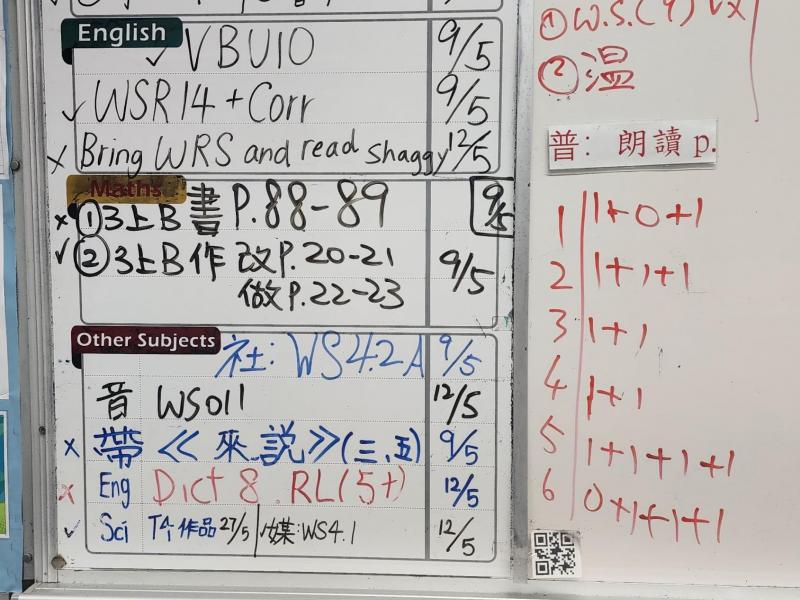 English
✓ VBU10 9/5
✓ WSR14 + Corr 9/5
x Bring WRS and read shaggy 12/5
Maths
x ① 3上B 書 P.88-89 9/5
✓ ② 3上B 作 改P.20-21 9/5
做P.22-23
Other Subjects
社: WS4.2A 9/5
音 WS011 12/5
x 帶 《來說》(三、五) 9/5
x Eng Dict 8 RL(5+) 12/5
✓ Sci T4 作品 27/5 媒:WS4.1 12/5
① W.S.(9)
② 溫
普: 朗讀 p.
1 1+0+1
2 1+1+1
3 1+1
4 1+1
5 1+1+1+1
6 0+1+1+1